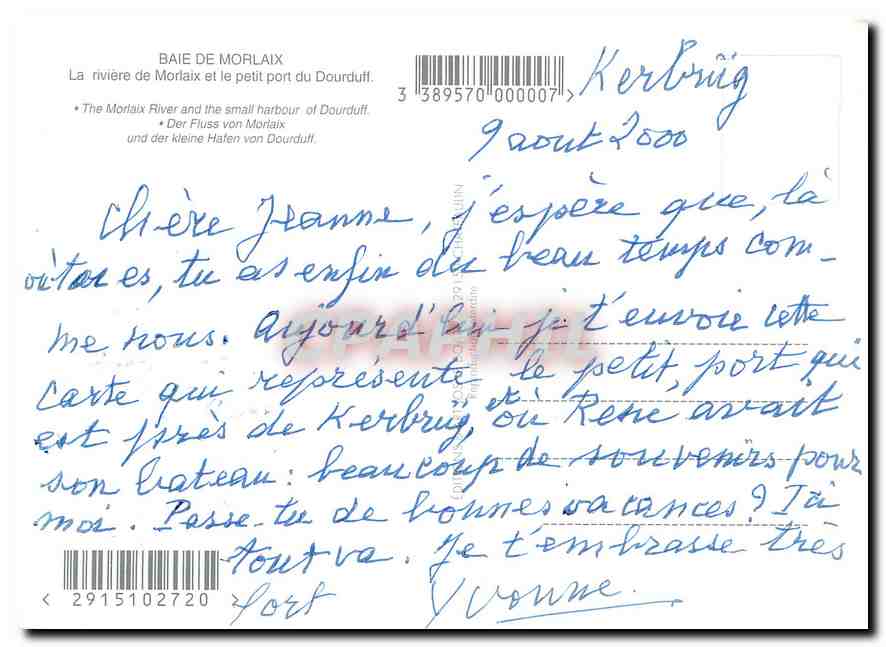 BAIE DE MORLAIX
La rivière de Morlaix et le petit port du Dourduff.
• The Morlaix River and the small harbour of Dourduff.
• Der Fluss von Morlaix
und der kleine Hafen von Dourduff.
3 389570 000007 >
Kerbrüg
9 aout 2000
Chère Jeanne, j'espère que, là
où tu es, tu as enfin du beau temps com-
me nous. Aujourd'hui je t'envoie cette
carte qui représente le petit port qui
est près de Kerbrüg, et où René avait
son bateau : beaucoup de souvenirs pour
moi. Passe-tu de bonnes vacances ? Ici
tout va. Je t'embrasse très
fort Yvonne
< 2915102720 >